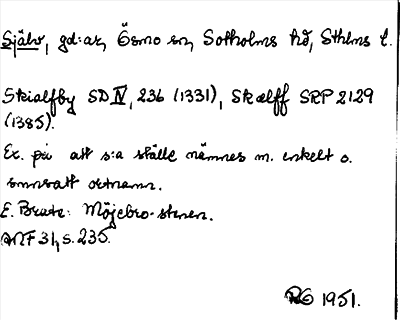 Själv, gd:ar, Ösmo sn, Sotholms hd, Sthlms l.
Skialfby SD IV, 236 (1331), Skælff SRP 2129
(1385).
Ex. på att s:a ställe nämnes m. enkelt o.
smnsatt ortnamn.
E. Brate: Möjebro-stenen.
ANF 31, s. 235.
RG 1951.